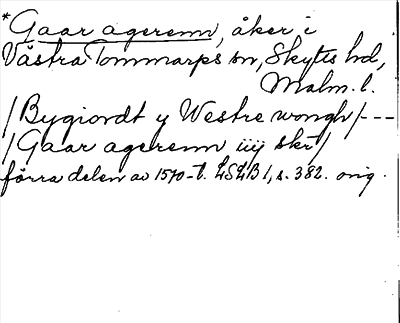 *Gaar agerenn, åker i
Västra Tommarps sn, Skytts hd,
Malm. l.
/Bygiordt y Westre wongh/---
/Gaar agerenn iiij skr/
förra delen av 1570-t. LSLB 1, s. 382. orig.